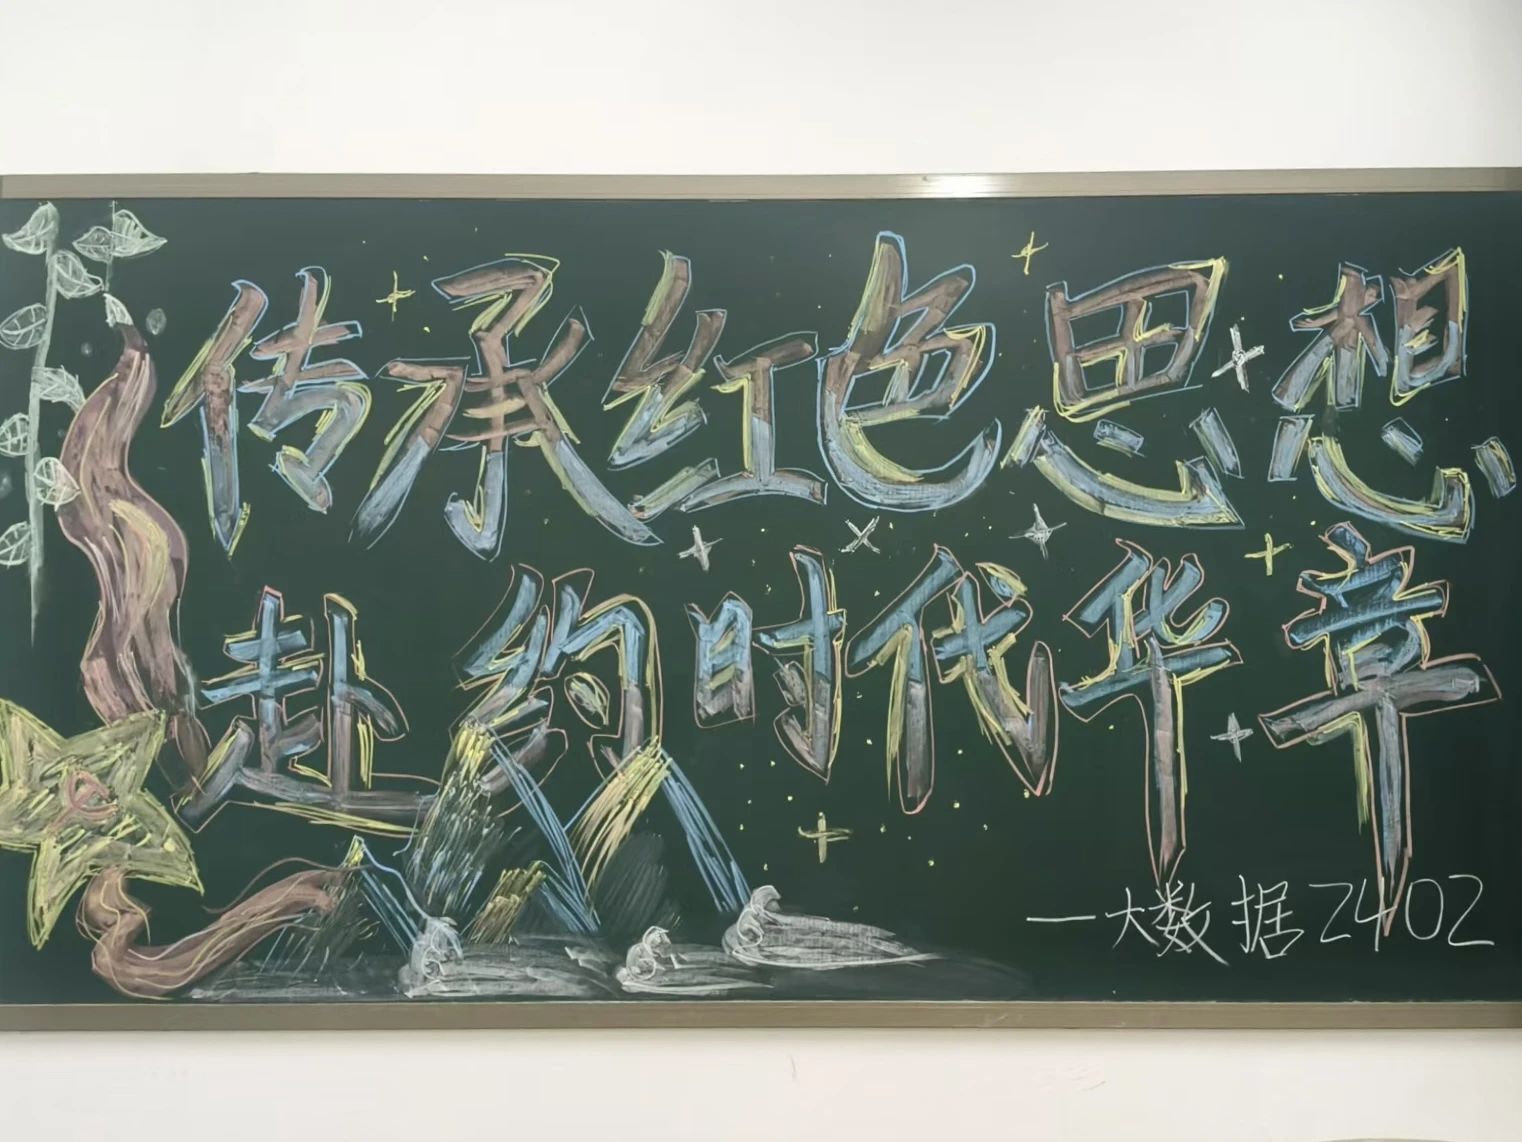 传承红色思想
赴约时代华章
一大数据2402